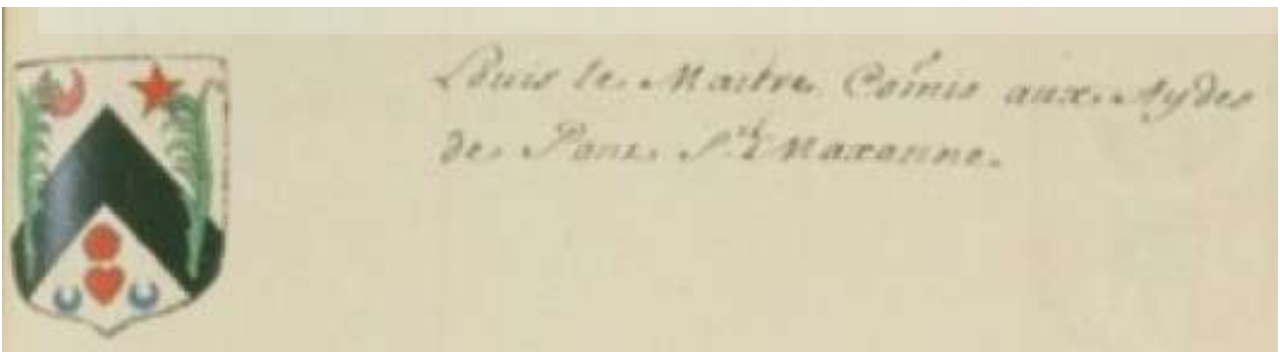 Louis le Maitre Com̃is aux Aydes
de Pont Ste Maxanne.